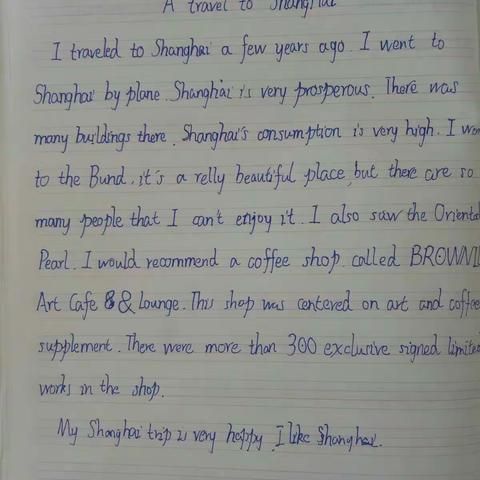 A travel to Shanghai
I traveled to Shanghai a few years ago. I went to
Shanghai by plane. Shanghai is very prosperous. There was
many buildings there. Shanghai's consumption is very high. I
to the Bund, it's a relly beautiful place, but there are so
many people that I can't enjoy it. I also saw the Oriental
Pearl. I would recommend a coffee shop called
Art Cafe & Lounge. This shop was centered on art and coffee
supplement. There were more than 300 exclusive signed limited
works in the shop.
My Shanghai trip is very happy. I like Shanghai.